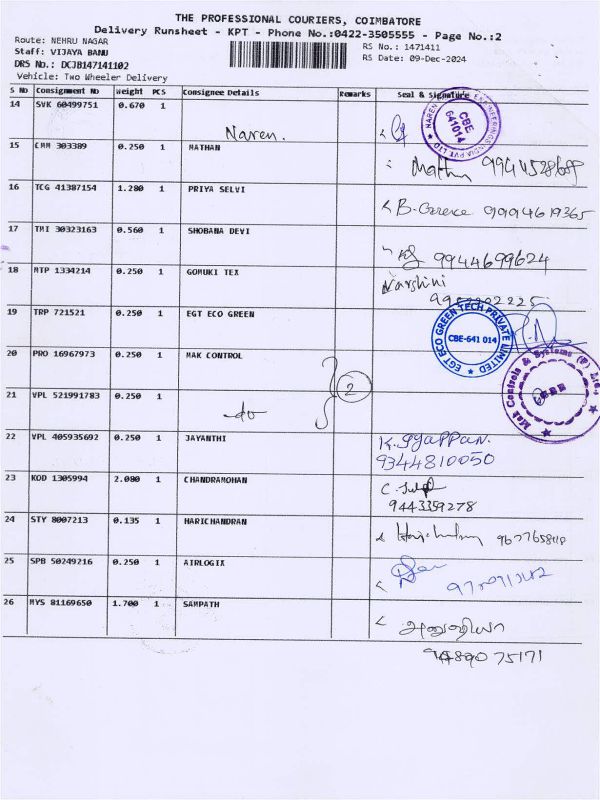 THE PROFESSIONAL COURIERS, COIMBATORE
Delivery Runsheet - KPT - Phone No.:0422-3505555 - Page No.:2
Route: NEHRU NAGAR
Staff: VIJAYA BANU
DRS No.: DCJB147141102
Vehicle: Two Wheeler Delivery
RS No.: 1471411
RS Date: 09-Dec-2024
S No Consignment No Weight PCS Consignee Details Remarks Seal & Signature
14 SVK 60499751 0.670 1 Naren.
CBE 641014
15 CMM 303389 0.250 1 MATHAN
16 TCG 41387154 1.280 1 PRIYA SELVI 9994619365
17 TMI 30323163 0.560 1 SHOBANA DEVI 9944699624
18 MTP 1334214 0.250 1 GOMUKI TEX Varshini
19 TRP 721521 0.250 1 EGT ECO GREEN
EGT ECO GREEN TECH PRIVATE LIMITED
CBE-641 014
20 PRO 16967973 0.250 1 MAK CONTROL
2
Mak Controls & Systems (P) Ltd.,
21 VPL 521991783 0.250 1 -do-
22 VPL 405935692 0.250 1 JAYANTHI K. Iyappan.
9344810050
23 KOD 1305994 2.080 1 CHANDRAMOHAN
9443359278
24 STY 8007213 0.135 1 HARICHANDRAN
25 SPB 50249216 0.250 1 AIRLOGIX
26 MYS 81169650 1.700 1 SAMPATH